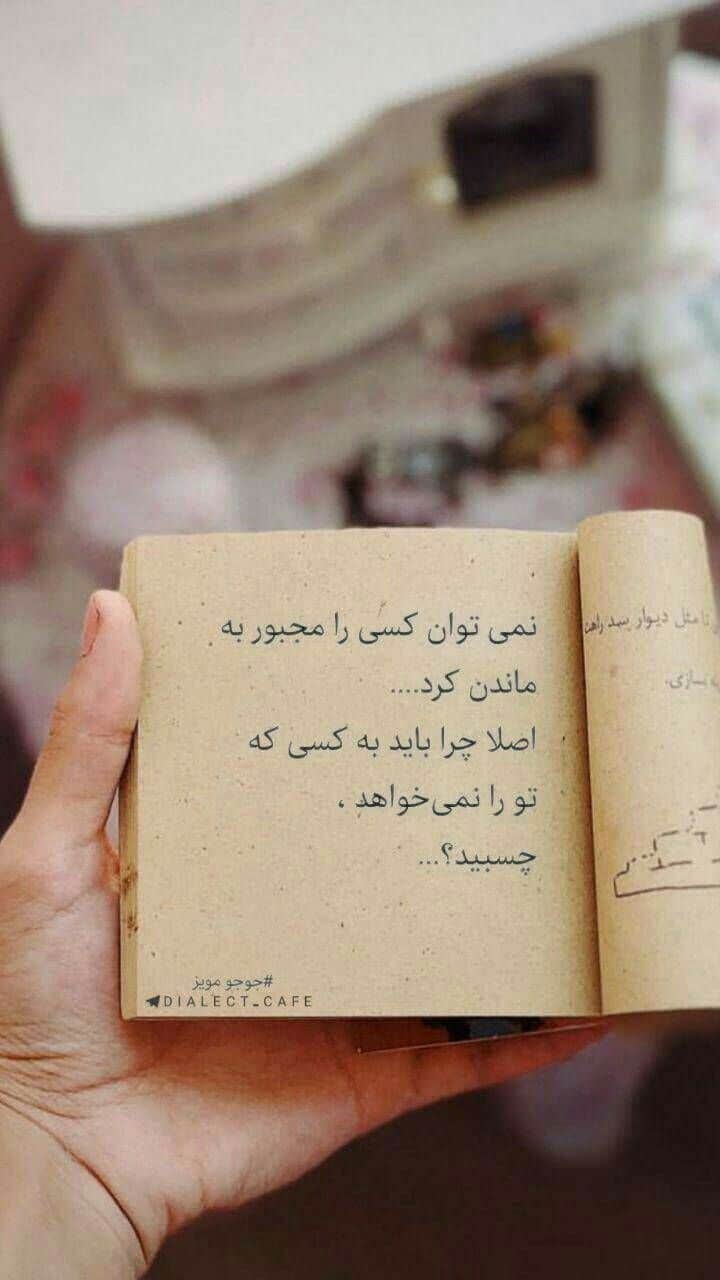 نمی توان کسی را مجبور به
ماندن کرد....
اصلا چرا باید به کسی که
تو را نمی‌خواهد ،
چسبید؟...
#جوجو مویز
DIALECT_CAFE
تا مثل دیوار سد راهت
سازی.